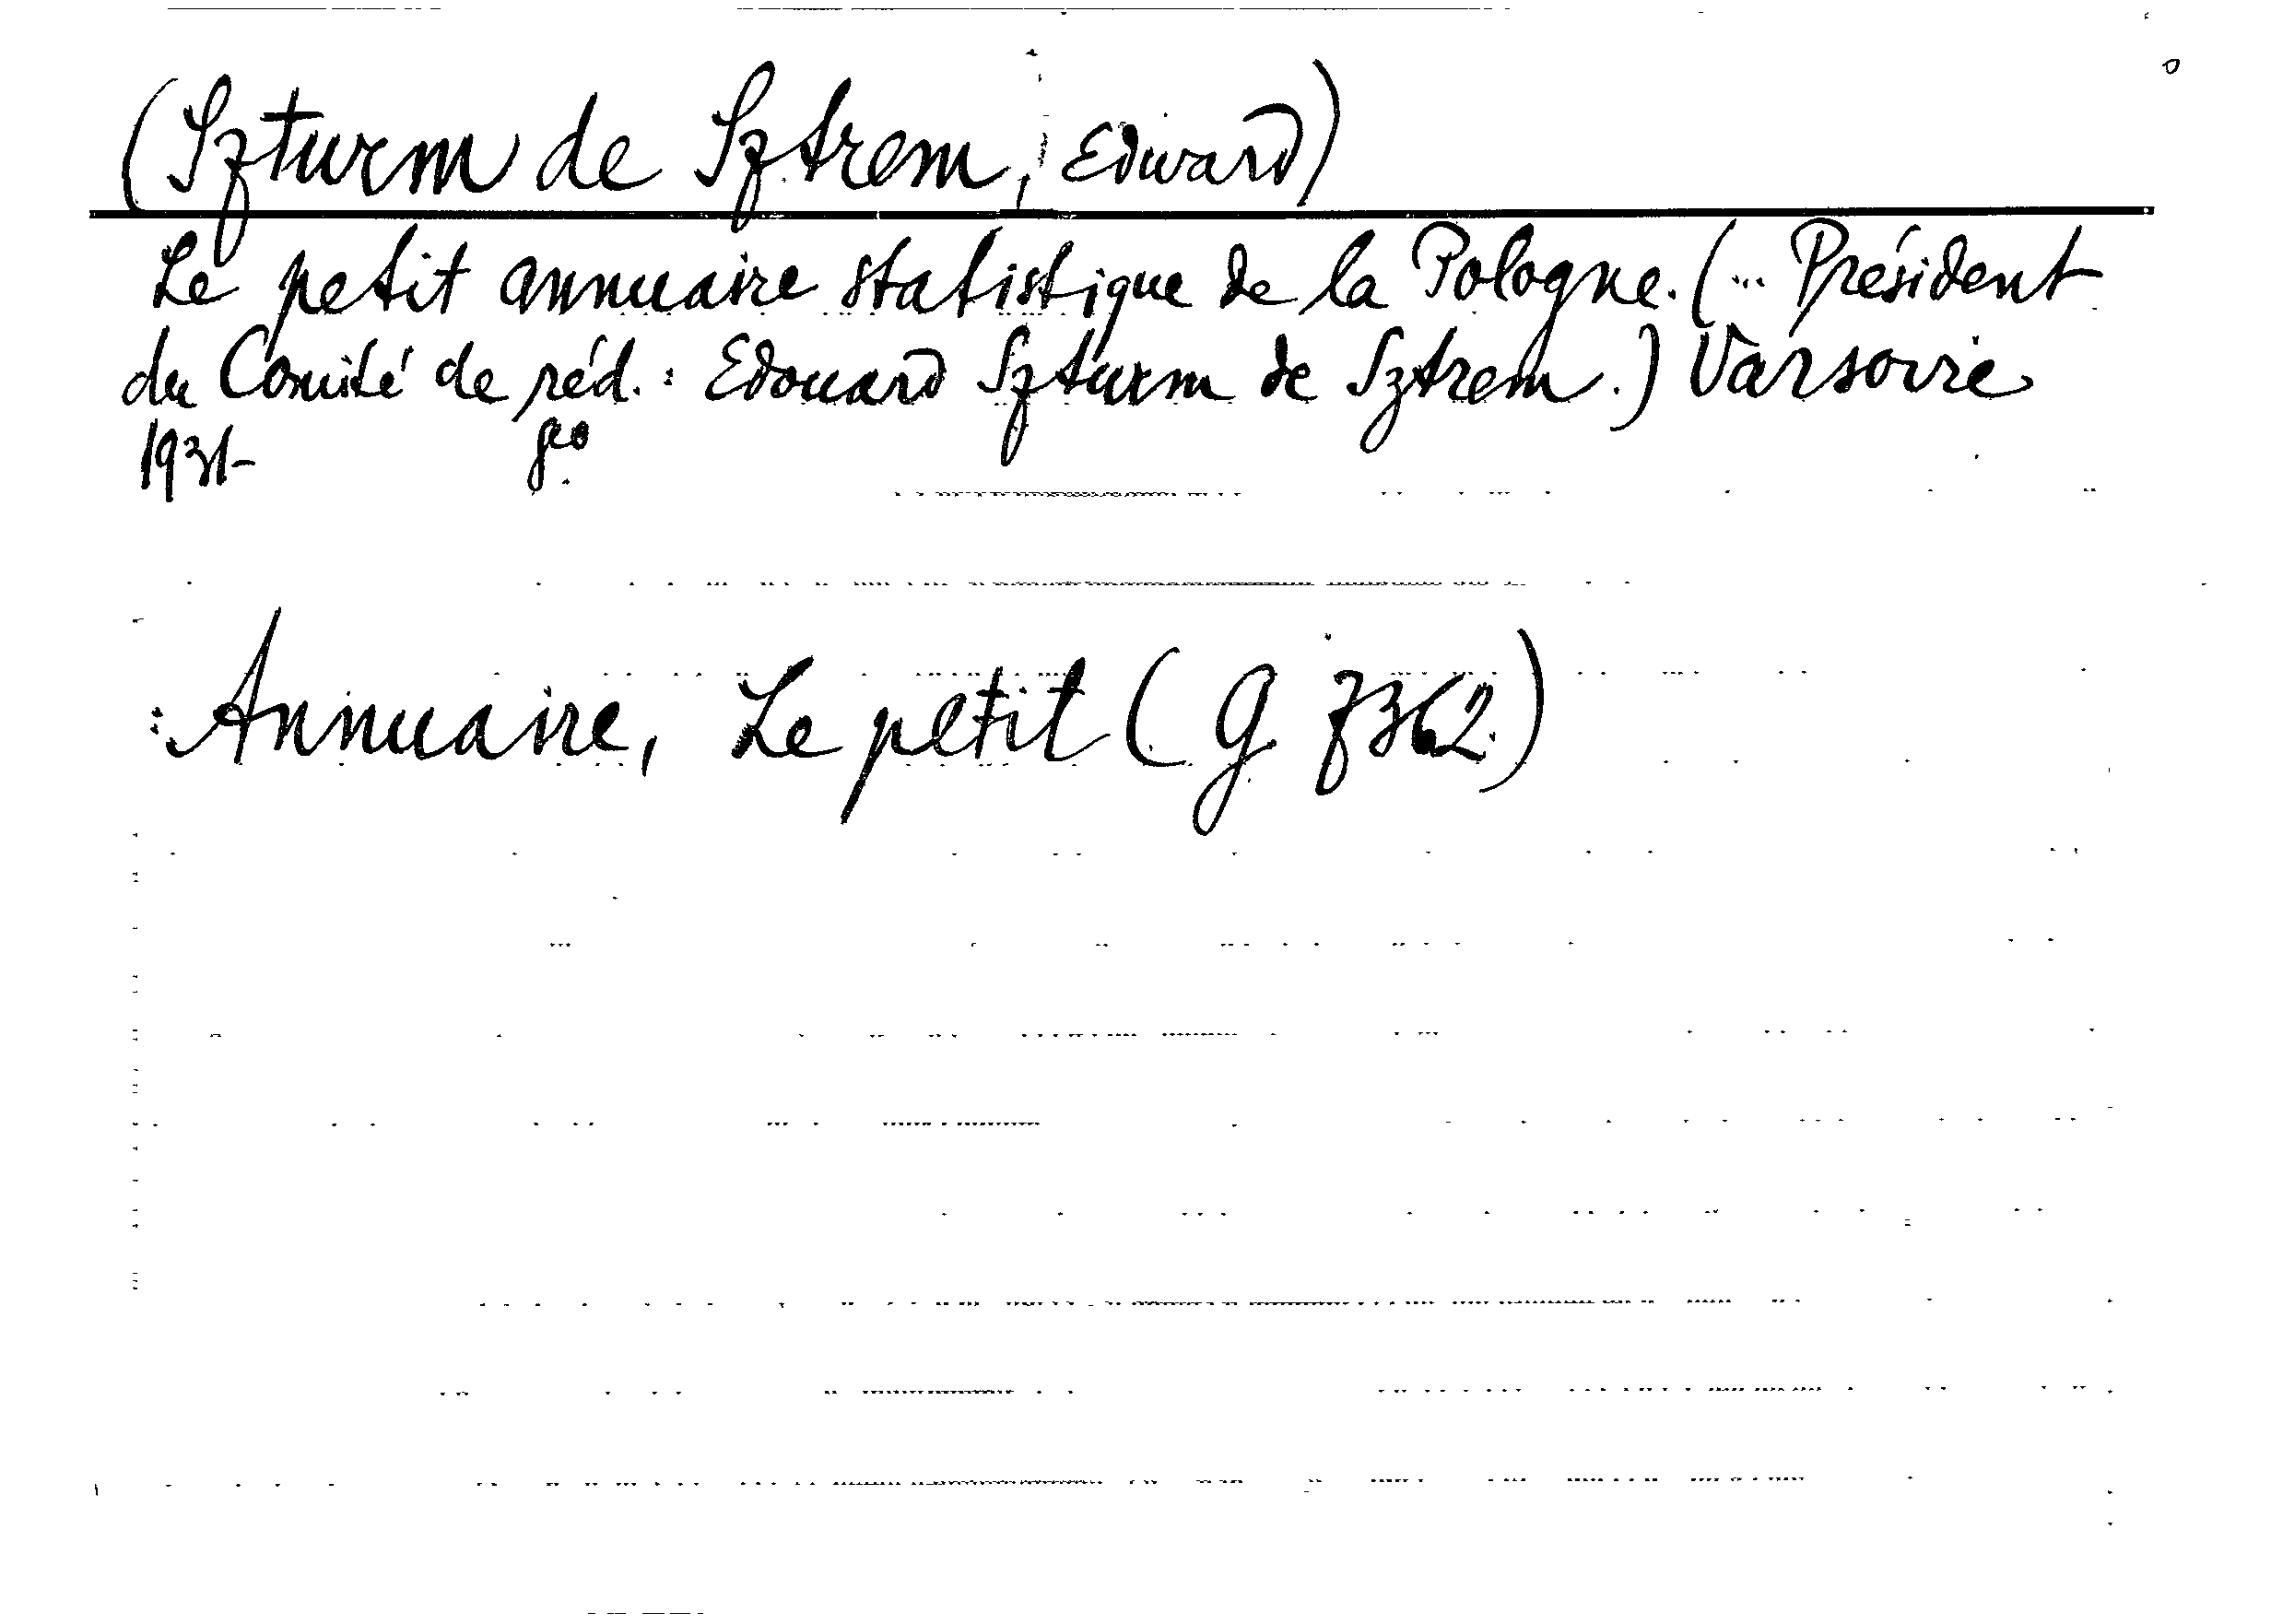 (Szturm de Sztrem, Edward)
Le petit annuaire statistique de la Pologne. (... Président
du Comité de réd. : Edouard Szturm de Sztrem.) Varsovie
1931- 8º
: Annuaire, Le petit (G. 7362.)